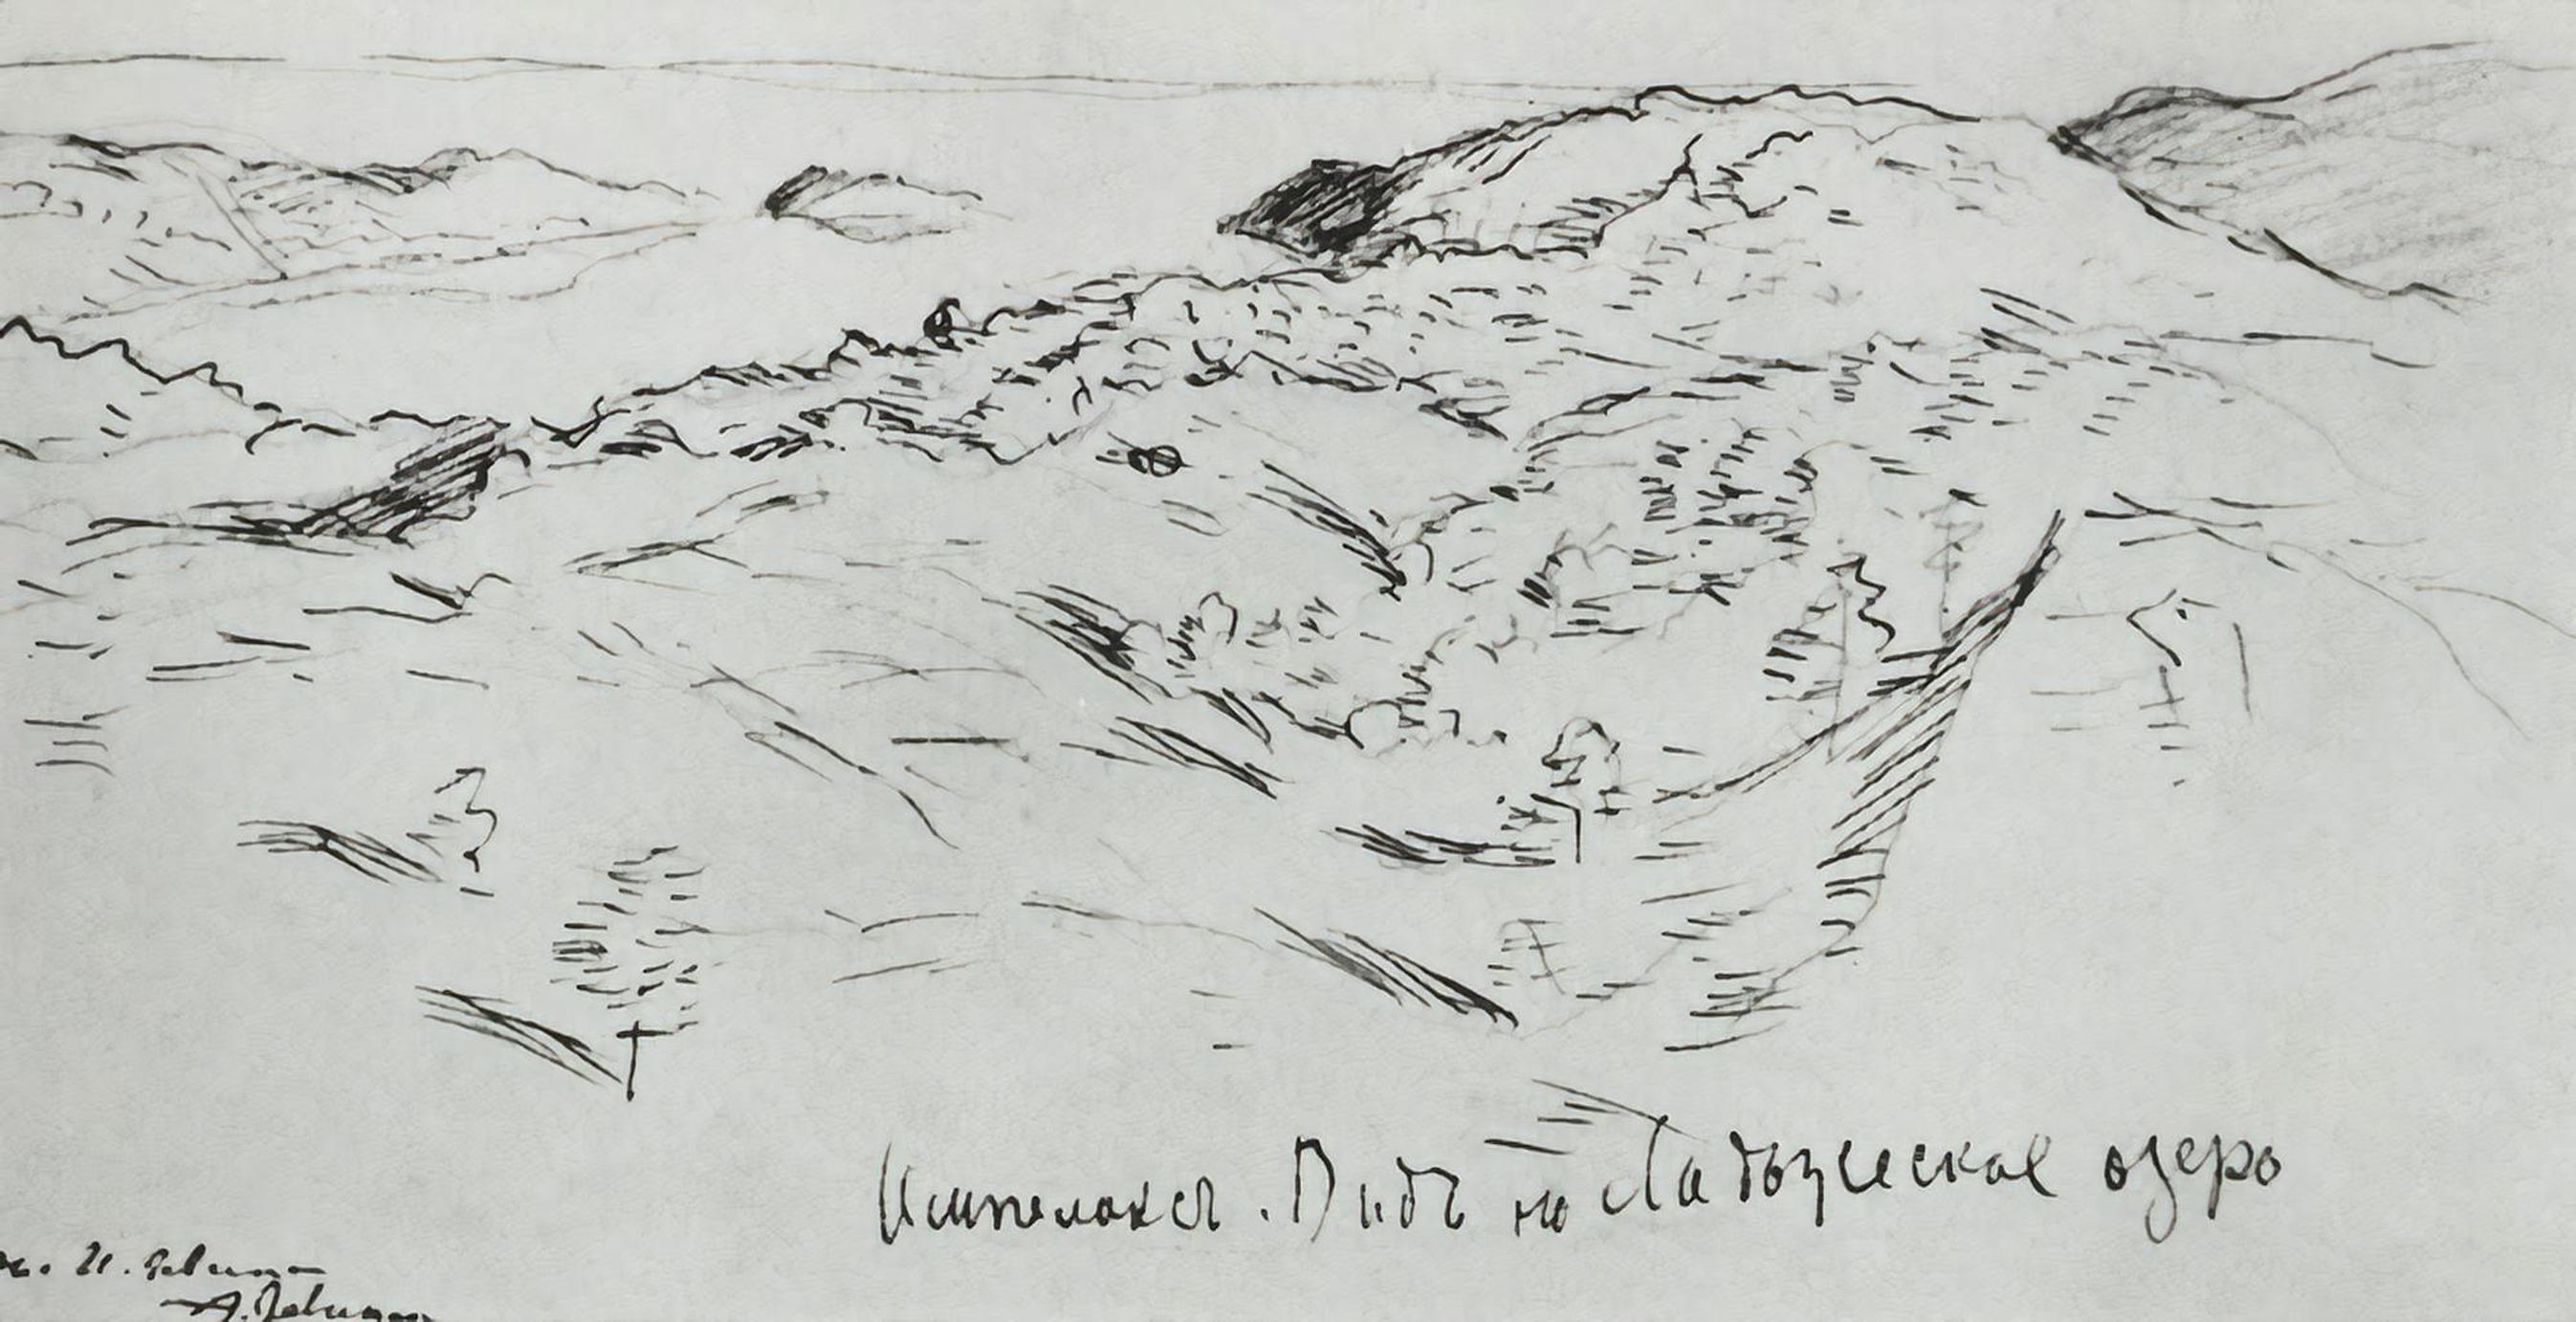 Импелакса. Видъ на Ладожское озеро
И. Левитан
А. Левитан